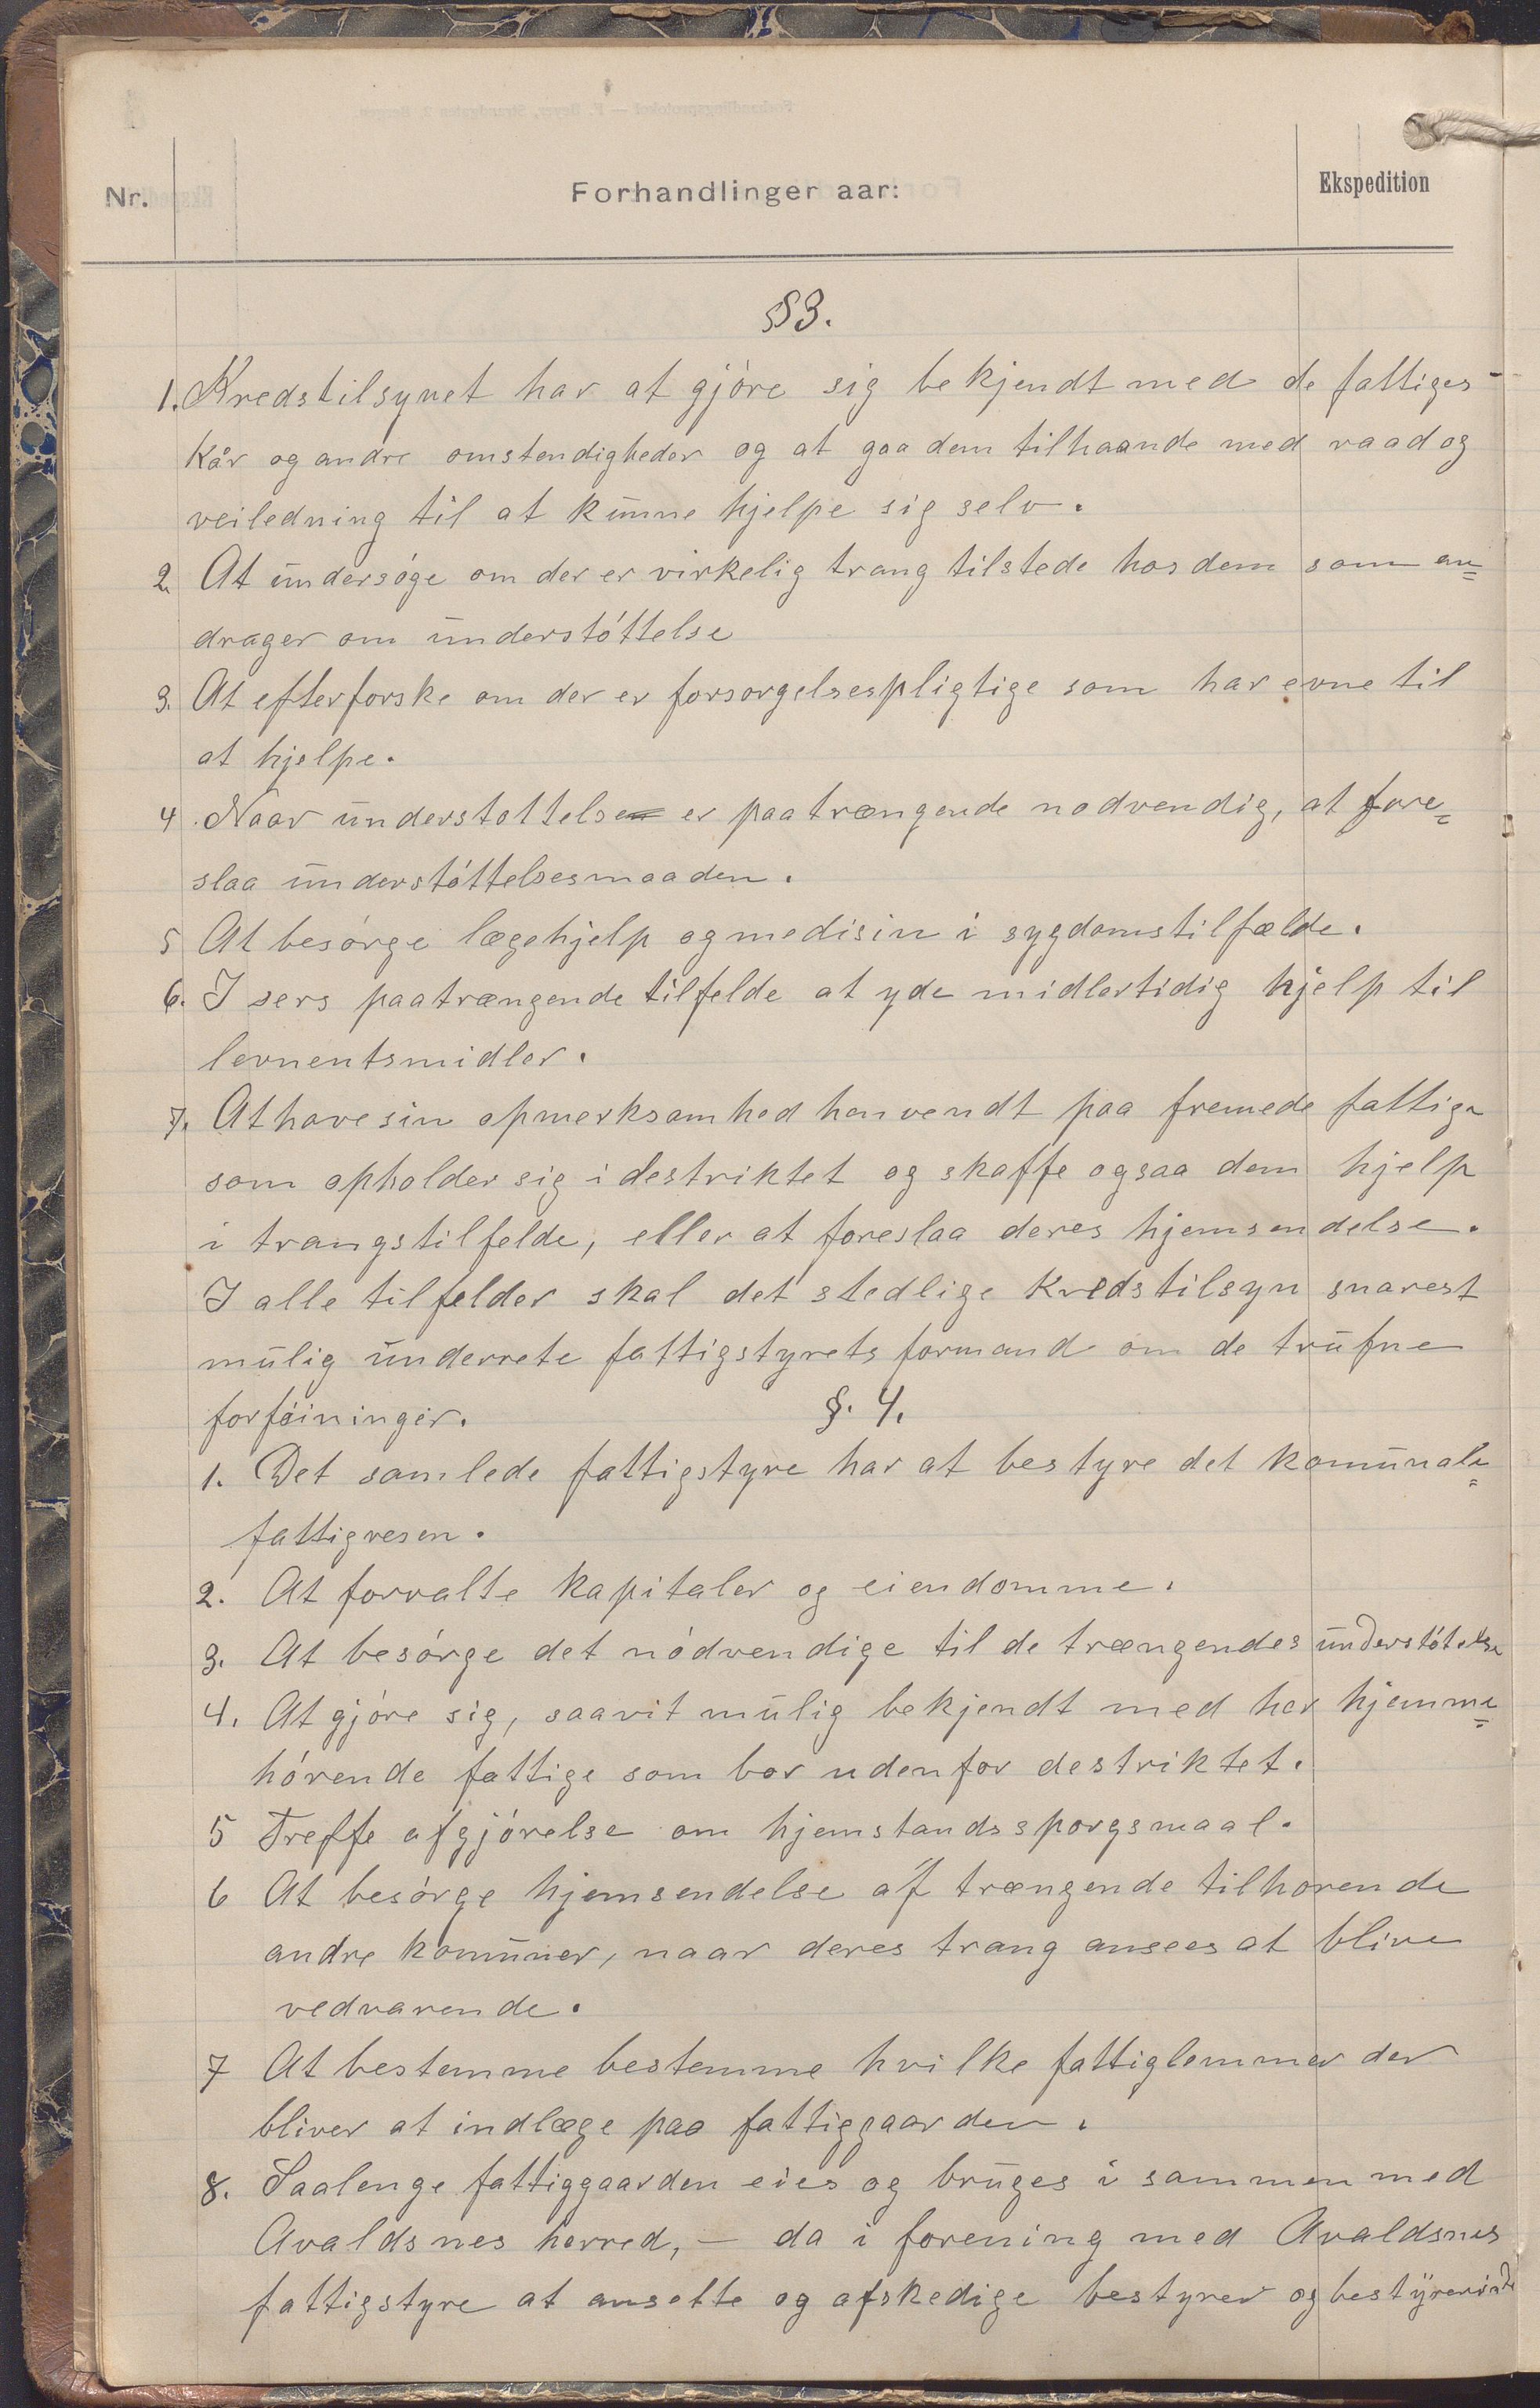 Nr.
Forhandlinger aar:
Ekspedition
§3.
1. Kredstilsynet har at gjóre sig bekjendt med de fattiges
kår og andre omstendigheder og at gaa dem tilhaande med raad og
veiledning til at kunne hjelpe sig selv.
2. At undersóge om der er virkelig trang tilstede hos dem som an=
drager om understóttelse
3. At efterforske om der er forsorgelsespligtige som har evne til
at hjelpe.
4. Naar understottelse er paatrængende nodvendig, at fore=
slaa understóttelsesmaaden.
5 At besórge lægehjelp og medisin i sygdomstilfælde.
6. I sers paatrængende tilfelde at yde midlertidig hjelp til
levnentsmidler.
7. At have sin opmerksomhed henvendt paa fremede fattige
som opholder sig i destriktet og skaffe ogsaa dem hjelp
i trangstilfelde, eller at foreslaa deres hjemsendelse.
I alle tilfelder skal det stedlige Kredstilsyn snarest
mulig underrete fattigstyrets formand om de trufne
forfóininger.
§. 4.
1. Det samlede fattigstyre har at bestyre det komunale=
fattigvesen.
2. At forvalte kapitaler og eiendomme.
3. At besórge det nódvendige til de trængendes understótelse
4. At gjóre sig, saavit mulig bekjendt med her hjemme=
hórende fattige som bor udenfor destriktet.
5 Treffe afgjórelse om hjemstandssporgsmaal.
6 At besórge hjemsendelse af trængende tilhorende
andre komuner, naar deres trang ansees at blive
vedvarende.
7 At bestemme bestemme hvilke fattiglemmer der
bliver at indlæge paa fattiggaarden.
8. Saalenge fattiggaarden eies og bruges i sammen med
Avaldsnes herred, – da i forening med Avaldsnes
fattigstyre at ansette og afskedige bestyrer og bestyrerinde